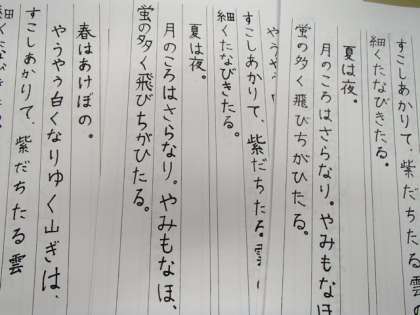 て、紫だちたる雲の
細くたなびきたる。
夏は夜。
月のころはさらなり。やみもなほ
蛍の多く飛びちがひたる。
やうやう
すこしあかりて、紫だちたる雲
細くたなびきたる。
夏は夜。
月のころはさらなり。やみもなほ、
蛍の多く飛びちがひたる。
春はあけぼの。
やうやう白くなりゆく山ぎは、
すこしあかりて、紫だちたる雲